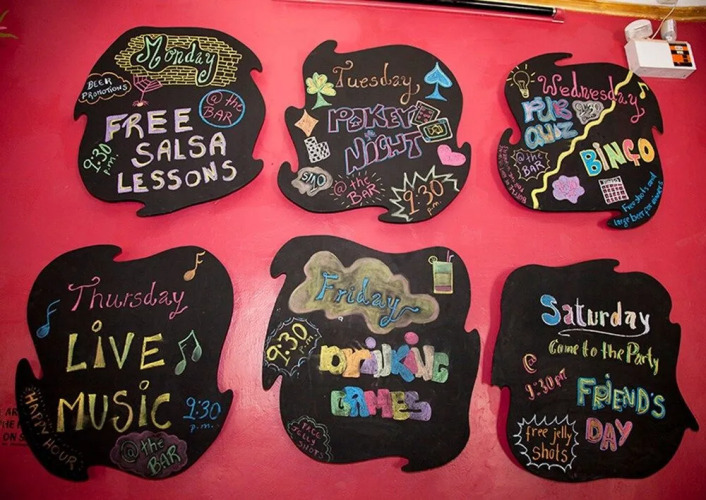 Monday
BEER
PROMOTIONS
@ the
BAR
FREE
SALSA
LESSONS
9:30
p.m.
Tuesday
POKEY
NIGHT
@ the
BAR
9:30
p.m.
Wednesday
PUB
QUIZ
@ the
BAR
BINGO
Free shots and
Large beer for winners
Thursday
LIVE
MUSIC
9:30
p.m.
HAPPY HOUR
@ the
BAR
Friday
9:30
p.m.
DRINKING
GAMES
FREE
JELLY
SHOTS
Saturday
Come to the Party
@
9:30 PM
FRIEND'S
DAY
free jelly
shots